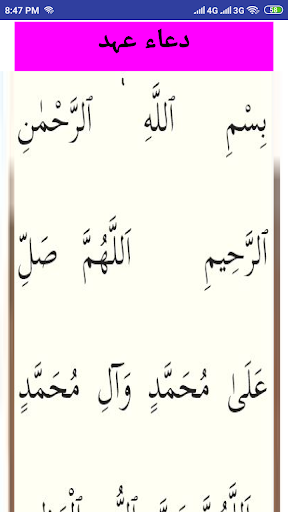 8:47 PM 4G 3G 58
دعاء عهد
بِسْمِ ٱللَّهِ ٱلرَّحْمَٰنِ
ٱلرَّحِيمِ ٱللَّهُمَّ صَلِّ
عَلَىٰ مُحَمَّدٍ وَآلِ مُحَمَّدٍ